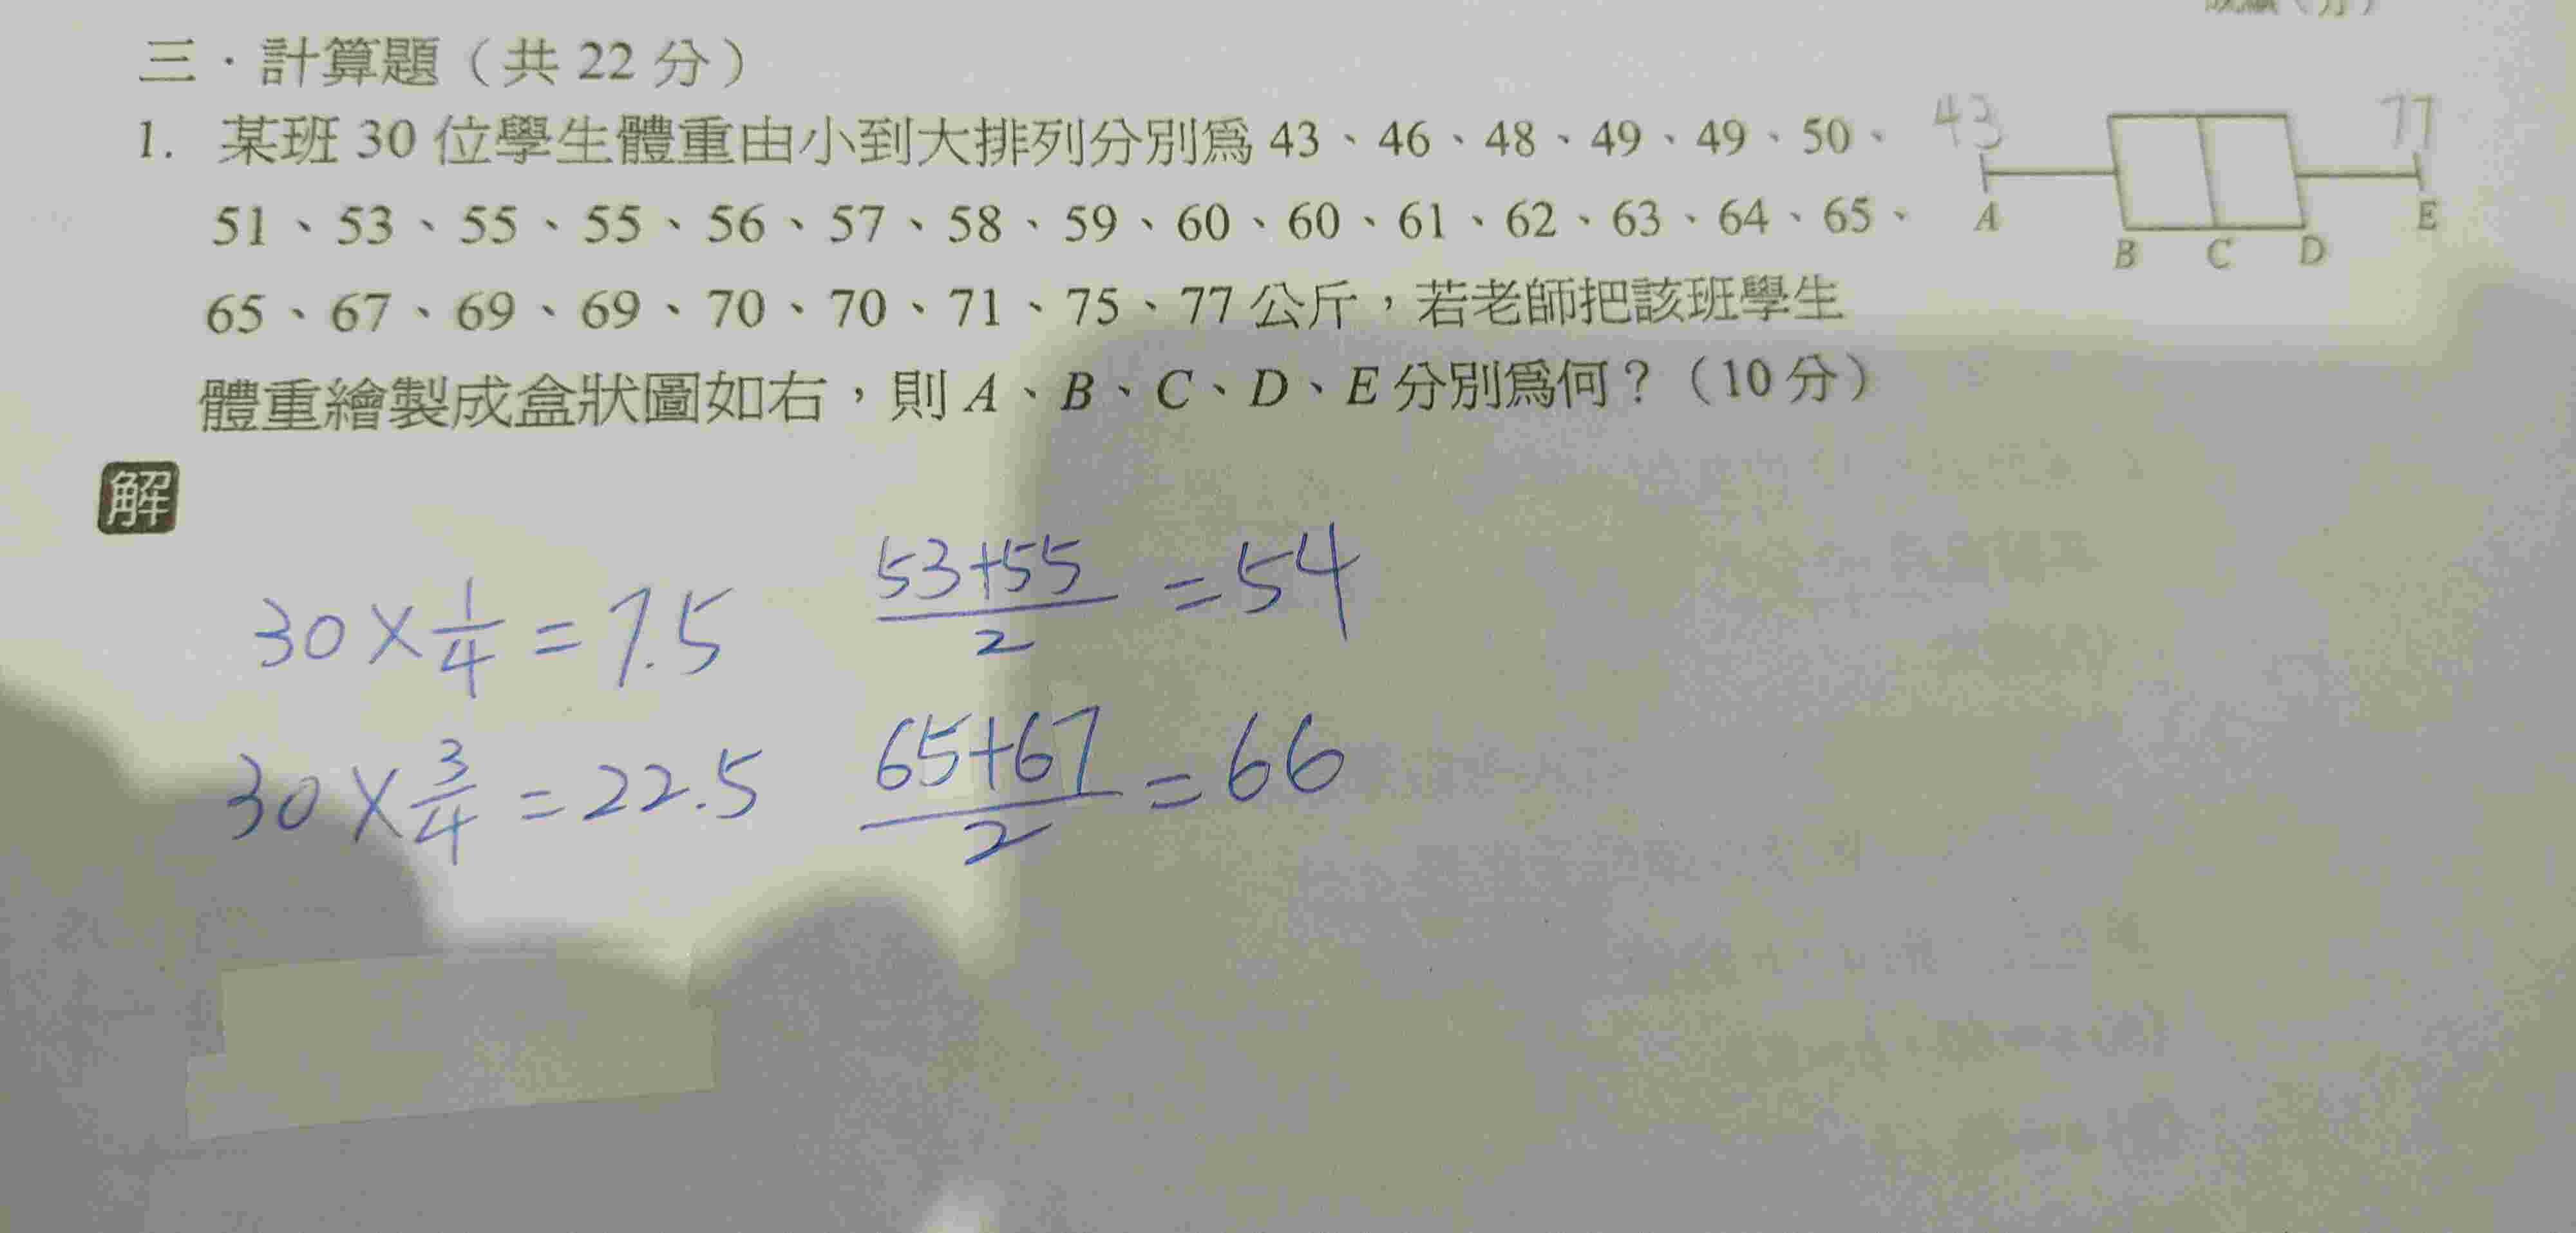 三．計算題（共 22 分）
1. 某班 30 位學生體重由小到大排列分別為 43、46、48、49、49、50、
51、53、55、55、56、57、58、59、60、60、61、62、63、64、65、
65、67、69、69、70、70、71、75、77 公斤，若老師把該班學生
體重繪製成盒狀圖如右，則 A、B、C、D、E 分別為何？（10 分）
43 77
A B C D E
解
30 × 1/4 = 7.5
53+55/2 = 54
30 × 3/4 = 22.5
65+67/2 = 66